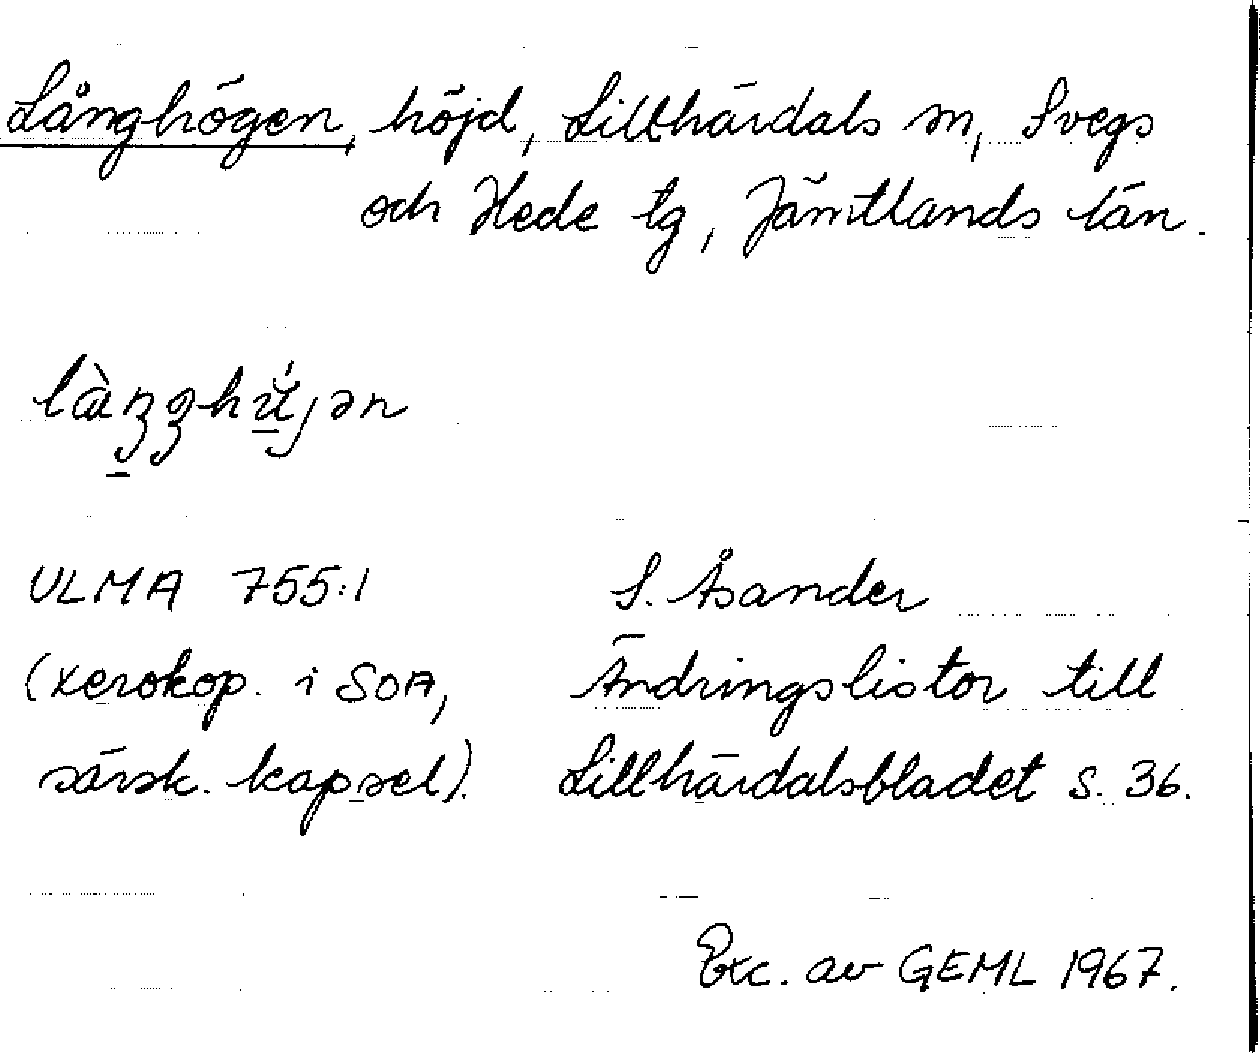 Långhögen, höjd, Lillhärdals sn, Svegs
och Hede tg, Jämtlands län.
ULMA 755:1 S. Åsander
(xerokop. i SOA, Ändringslistor till
särsk. kapsel). Lillhärdalsbladet s. 36.
Exc. av GEML 1967.